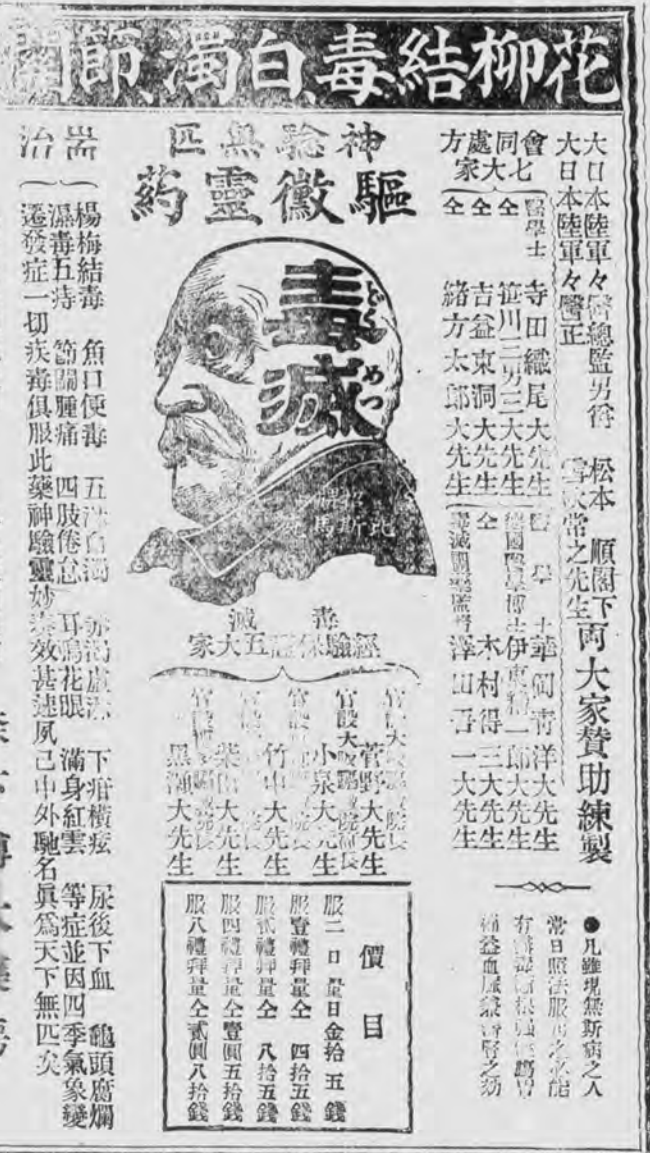 花柳結毒、白濁、節關
大日本陸軍々醫總監男爵 松本 順閣下
大日本陸軍々醫正 常之先生
兩大家賛助練製
會同處方
七大家
醫學士 寺田織尾大先生
仝 笹川三男三大先生
仝 吉益東洞大先生
仝 緒方太郎大先生
醫學士 華岡青洋大先生
德國醫學博士 伊東 一郎大先生
仝 木村得三大先生
毒滅 監督 澤田吾一大先生
●凡雖現無斯病之人
常日照法服 之必能
神驗無匹
驅黴靈葯
毒滅
どくめつ
比斯馬
毒滅
經驗保證五大家
官設大 院長 菅野大先生
官設大阪 院副長 小泉大先生
官設 院長 竹中大先生
柴田大先生
院長 大先生
價目
服二日量日金拾五錢
服壹禮拜量仝 四拾五錢
服貳禮拜量仝 八拾五錢
服四禮拜量仝壹圓五拾錢
服八禮拜量仝貳圓八拾錢
耑治
楊梅結毒 魚口便毒 五淋白濁 赤濁 下疳橫痃 尿後下血 龜頭腐爛
濕毒五痔 節關腫痛 四肢倦怠 耳鳴花眼 滿身紅雲 等症並因四季氣象變
遷發症一切疾毒俱服此藥神驗靈妙奏效甚速夙已中外馳名眞爲天下無匹矣